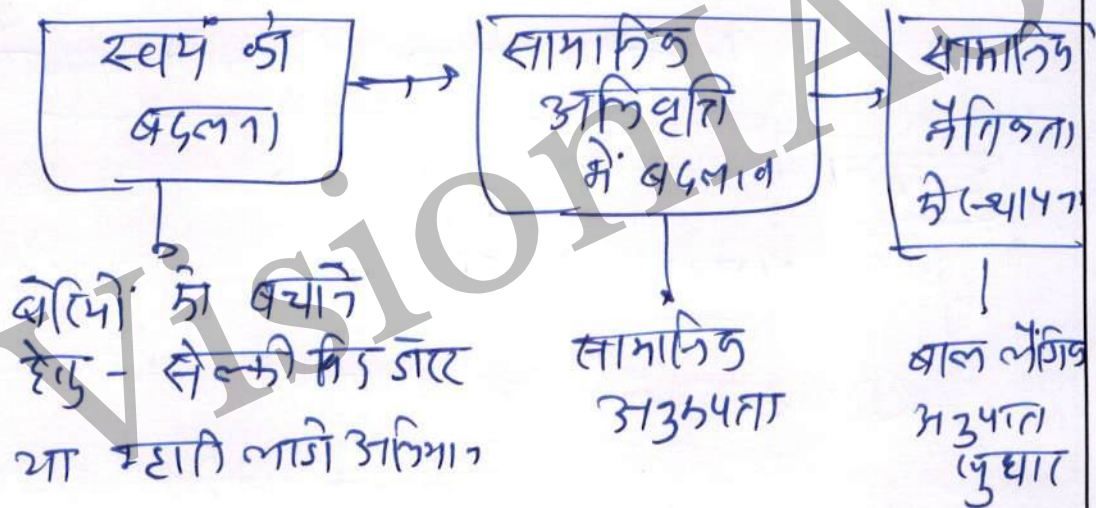 स्वयं को
बदलना
सामाजिक
अभिवृत्ति
में बदलाव
सामाजिक
नैतिकता
की स्थापना
बेटियों को बचाने
हेतु - सेल्फी विद डॉटर
या म्हारी लाडो अभियान
सामाजिक
अनुरूपता
बाल लैंगिक
अनुपात
सुधार
VisionIAS